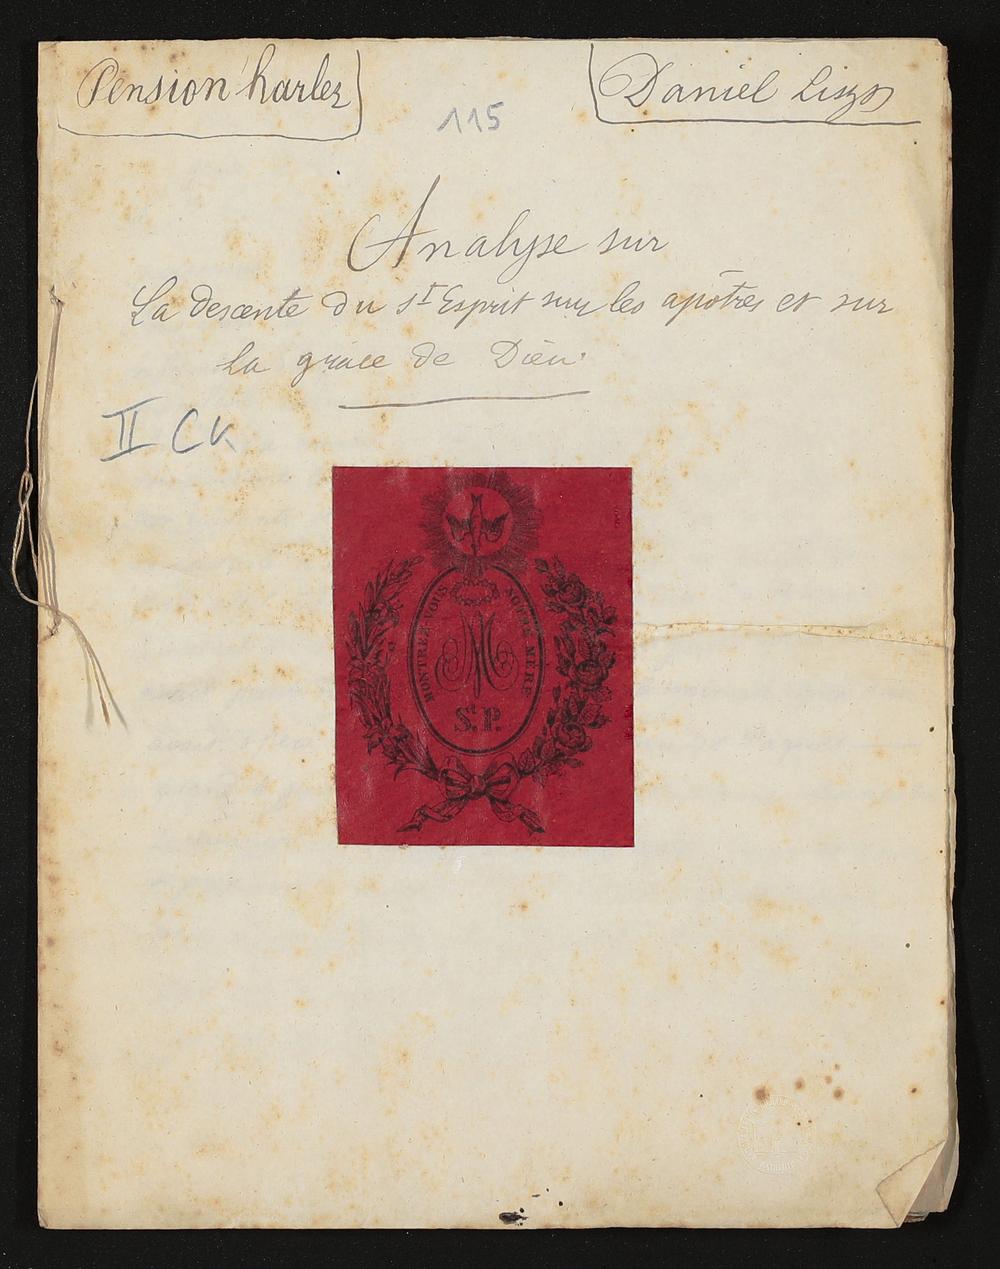 Pension harlez
Daniel Liszt
115
Analyse sur
La descente du St Esprit sur les apôtres et sur
la grace de Dieu.
II CK
MONTREZ-VOUS NOTRE MERE
M
S.P.